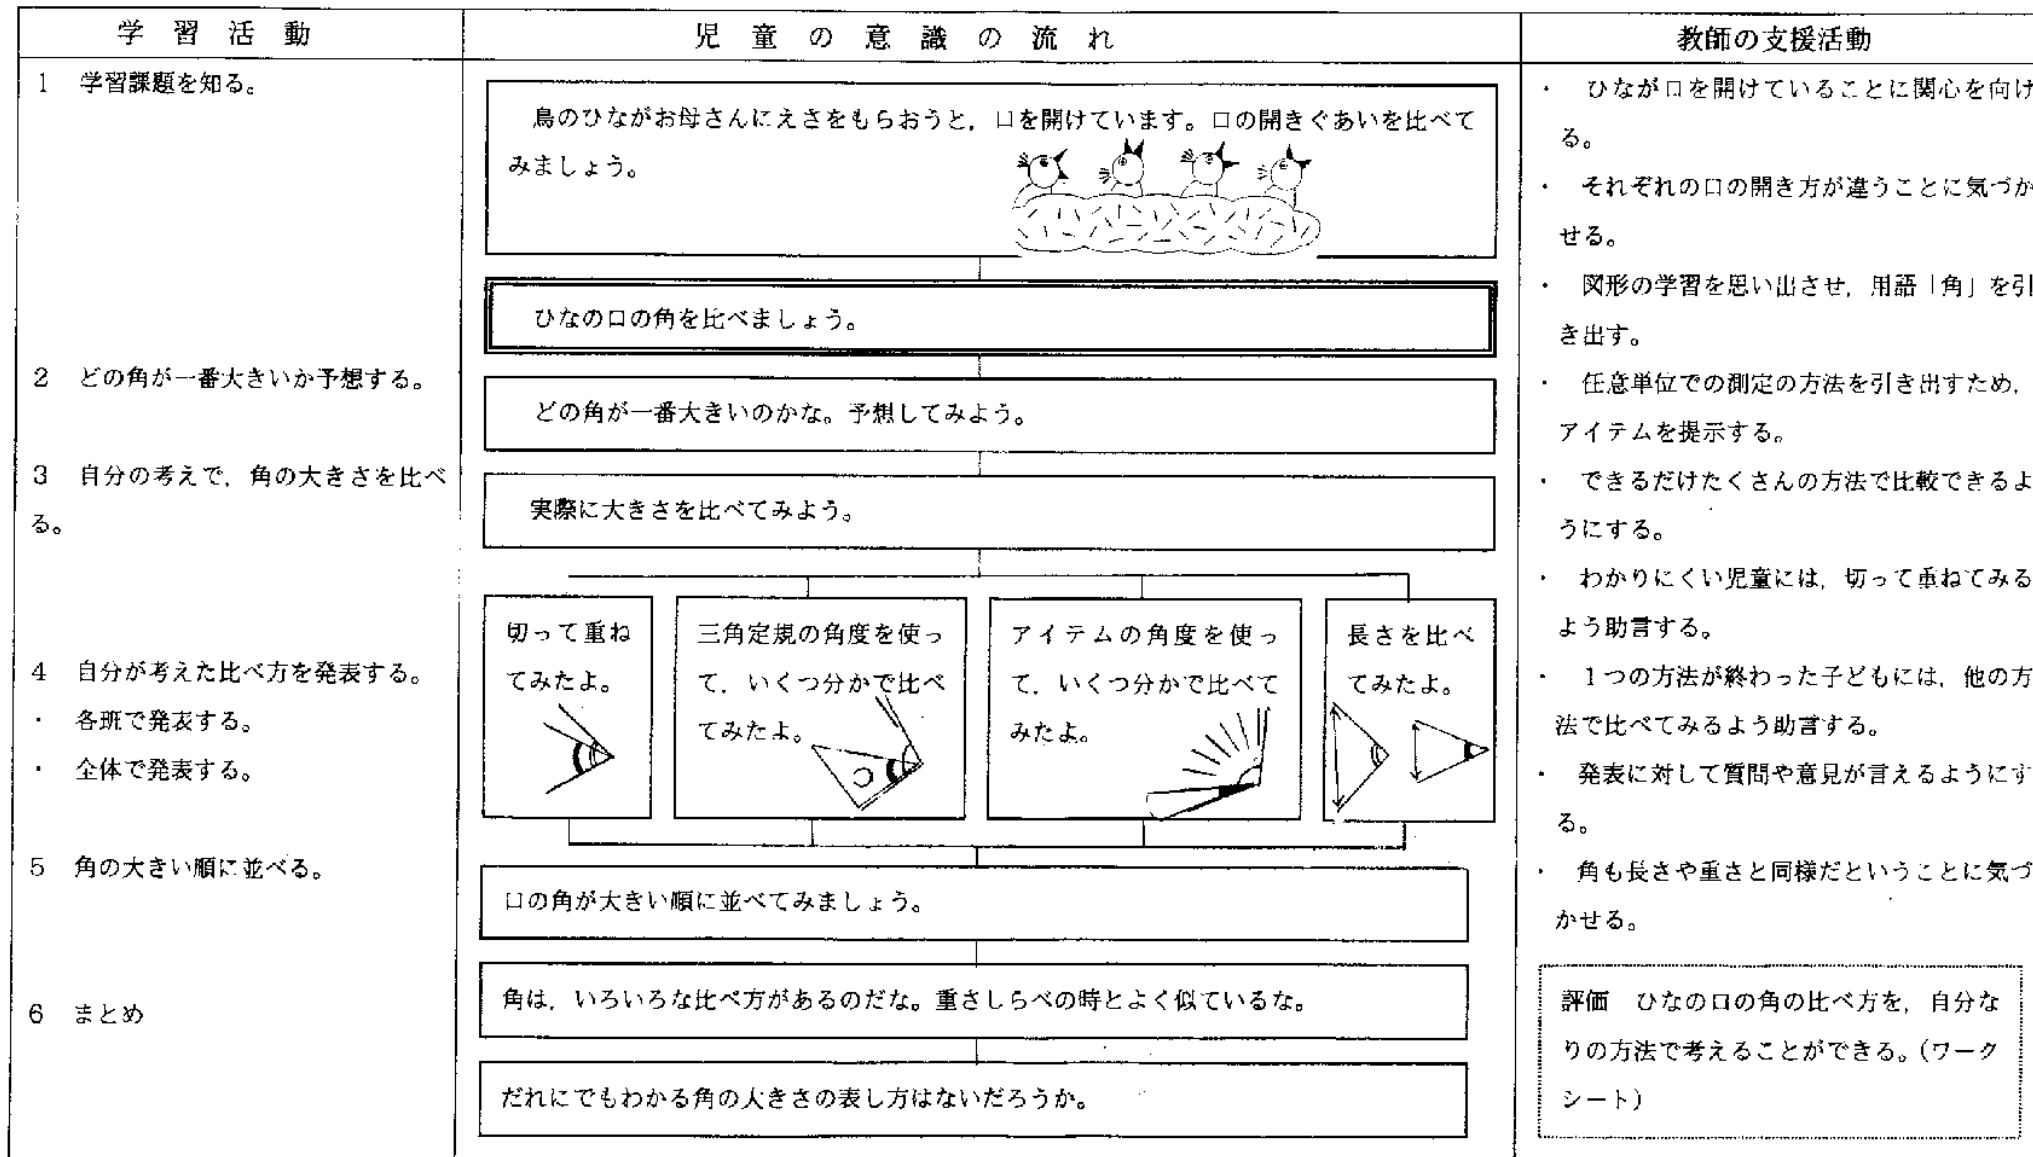 学習活動
1 学習課題を知る。
2 どの角が一番大きいか予想する。
3 自分の考えで，角の大きさを比べ
る。
4 自分が考えた比べ方を発表する。
・ 各班で発表する。
・ 全体で発表する。
5 角の大きい順に並べる。
6 まとめ
児童の意識の流れ
鳥のひながお母さんにえさをもらおうと，口を開けています。口の開きぐあいを比べて
みましょう。
ひなの口の角を比べましょう。
どの角が一番大きいのかな。予想してみよう。
実際に大きさを比べてみよう。
切って重ね
てみたよ。
三角定規の角度を使っ
て，いくつ分かで比べ
てみたよ。
アイテムの角度を使っ
て，いくつ分かで比べて
みたよ。
長さを比べ
てみたよ。
口の角が大きい順に並べてみましょう。
角は，いろいろな比べ方があるのだな。重さしらべの時とよく似ているな。
だれにでもわかる角の大きさの表し方はないだろうか。
教師の支援活動
・ ひなが口を開けていることに関心を向け
る。
・ それぞれの口の開き方が違うことに気づか
せる。
・ 図形の学習を思い出させ，用語「角」を引
き出す。
・ 任意単位での測定の方法を引き出すため，
アイテムを提示する。
・ できるだけたくさんの方法で比較できるよ
うにする。
・ わかりにくい児童には，切って重ねてみる
よう助言する。
・ 1つの方法が終わった子どもには，他の方
法で比べてみるよう助言する。
・ 発表に対して質問や意見が言えるようにす
る。
・ 角も長さや重さと同様だということに気づ
かせる。
評価 ひなの口の角の比べ方を，自分な
りの方法で考えることができる。（ワーク
シート）